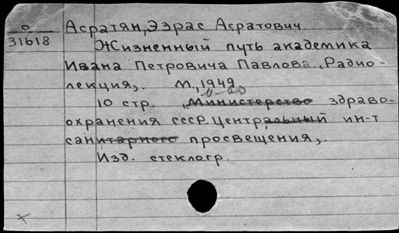 0
31618
Асратян, Эзрас Асратович
Жизненный путь академика
Ивана Петровича Павлова. Радио
лекция,. М., 1949
10 стр. Министерство здраво-
охранения СССР. Центральный ин-т
санитарного просвещения,.
Изд. стеклогр.